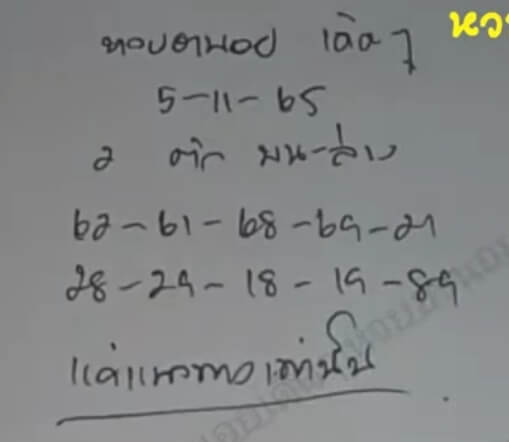 หว
หอบตามอย เด้อๆ
5-11-65
2 ตัก บน-ล่าง
62-61-68-69-21
28-29-18-19-89
แค่แนวทางเท่านั้น